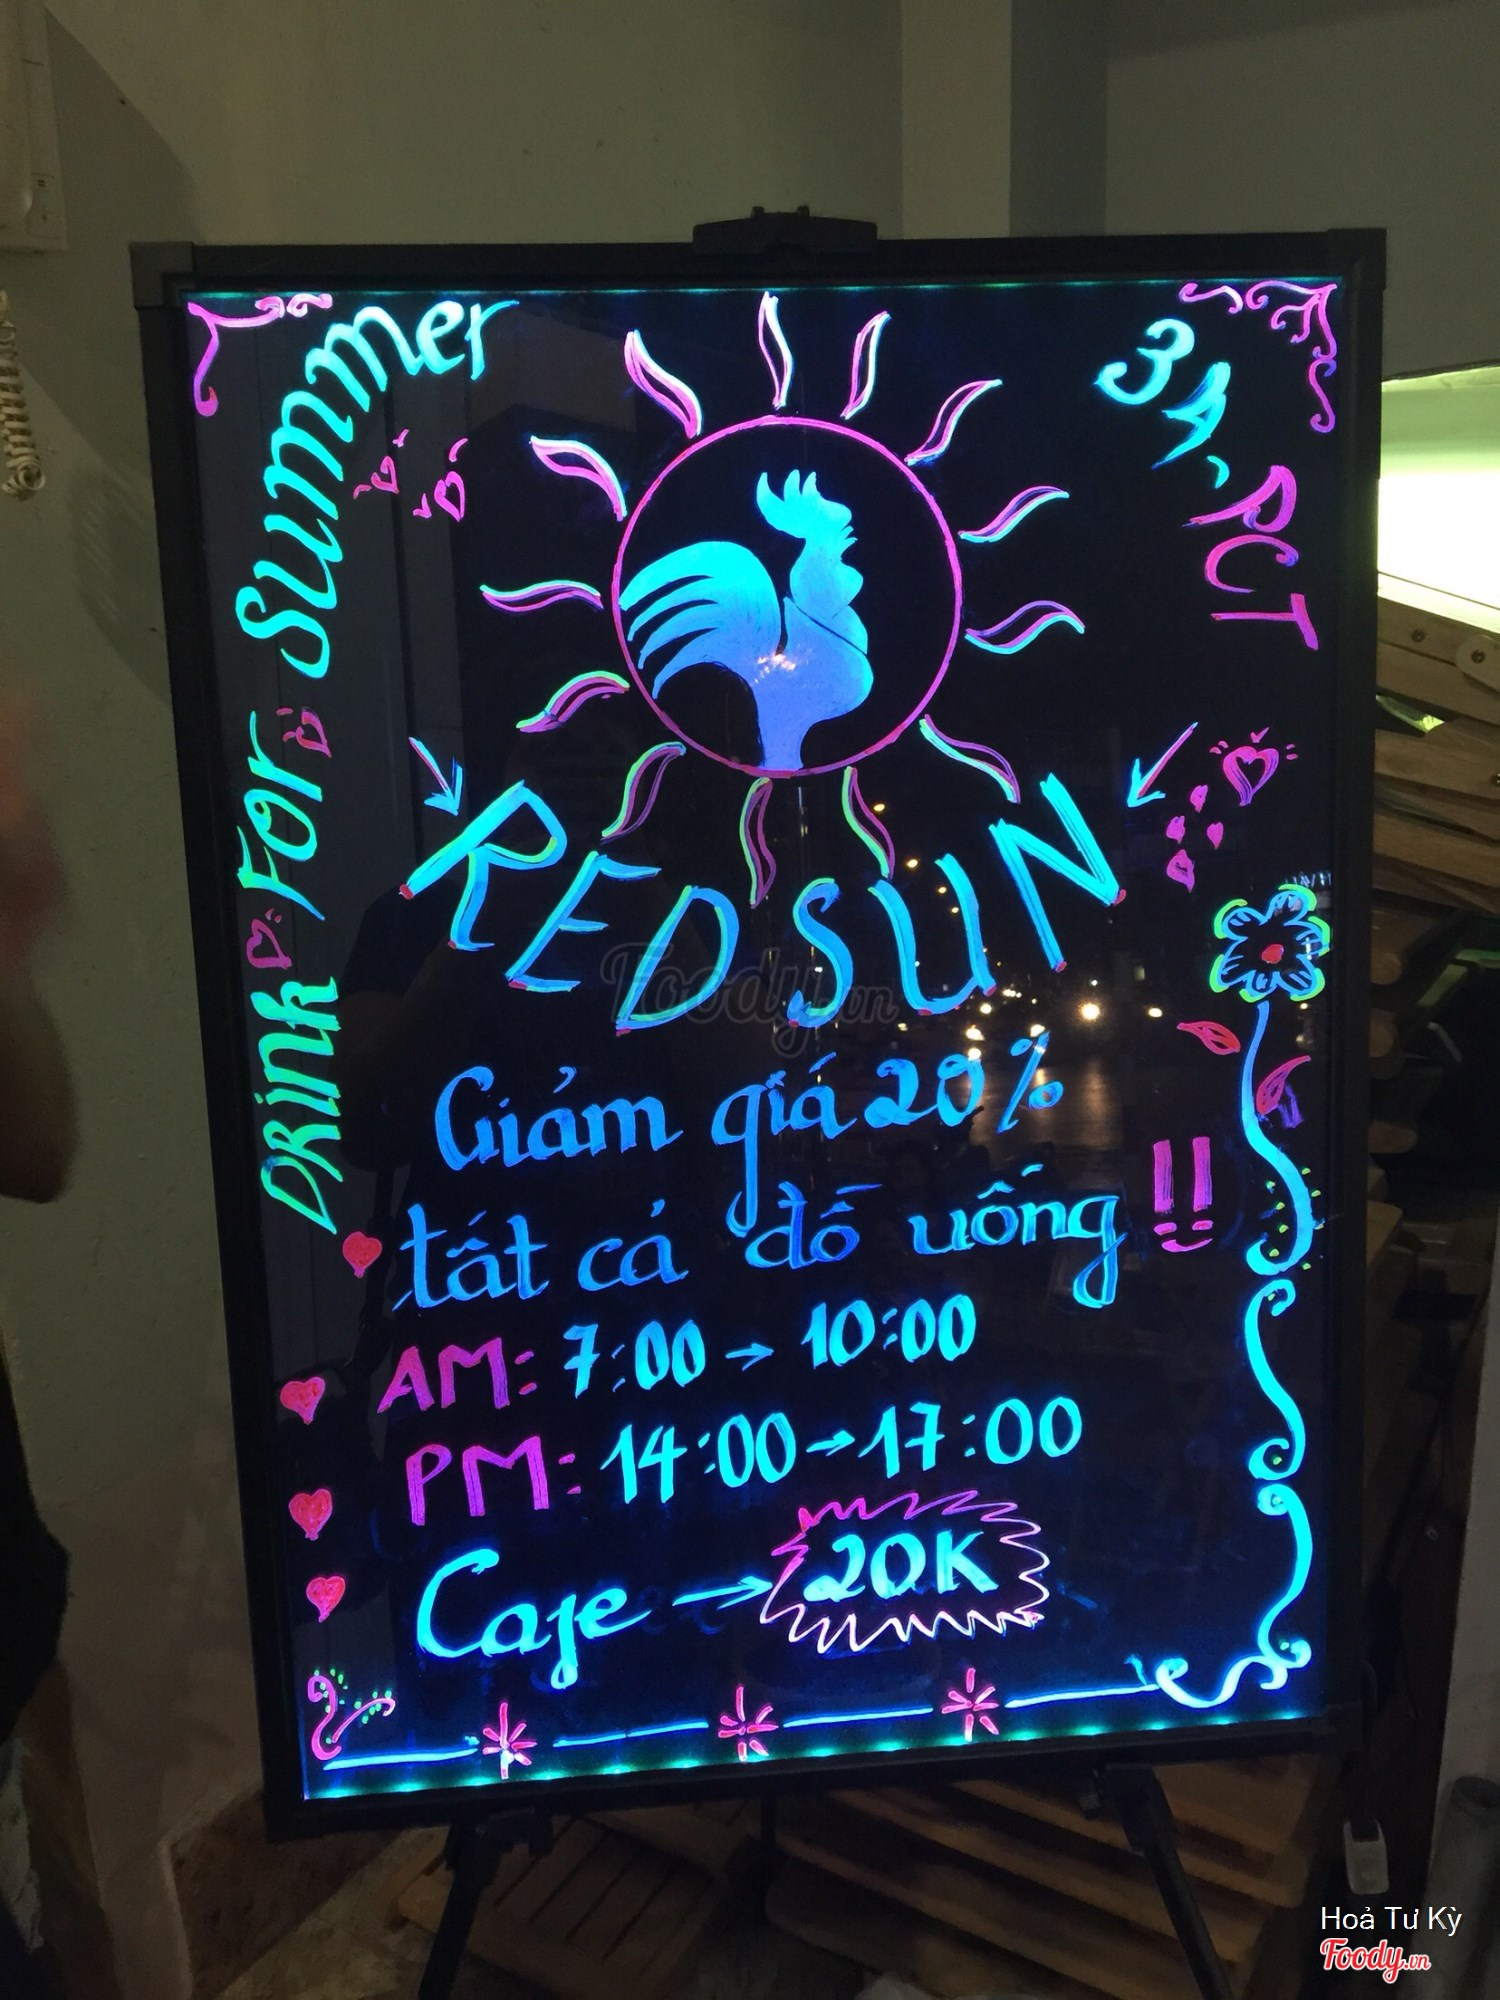 Drink For Summer
3A, PCT
RED SUN
Foody.vn
Giảm giá 20%
tất cả đồ uống !!
AM: 7:00 → 10:00
PM: 14:00 → 17:00
Cafe → 20K
Hoả Tư Kỳ
Foody.vn